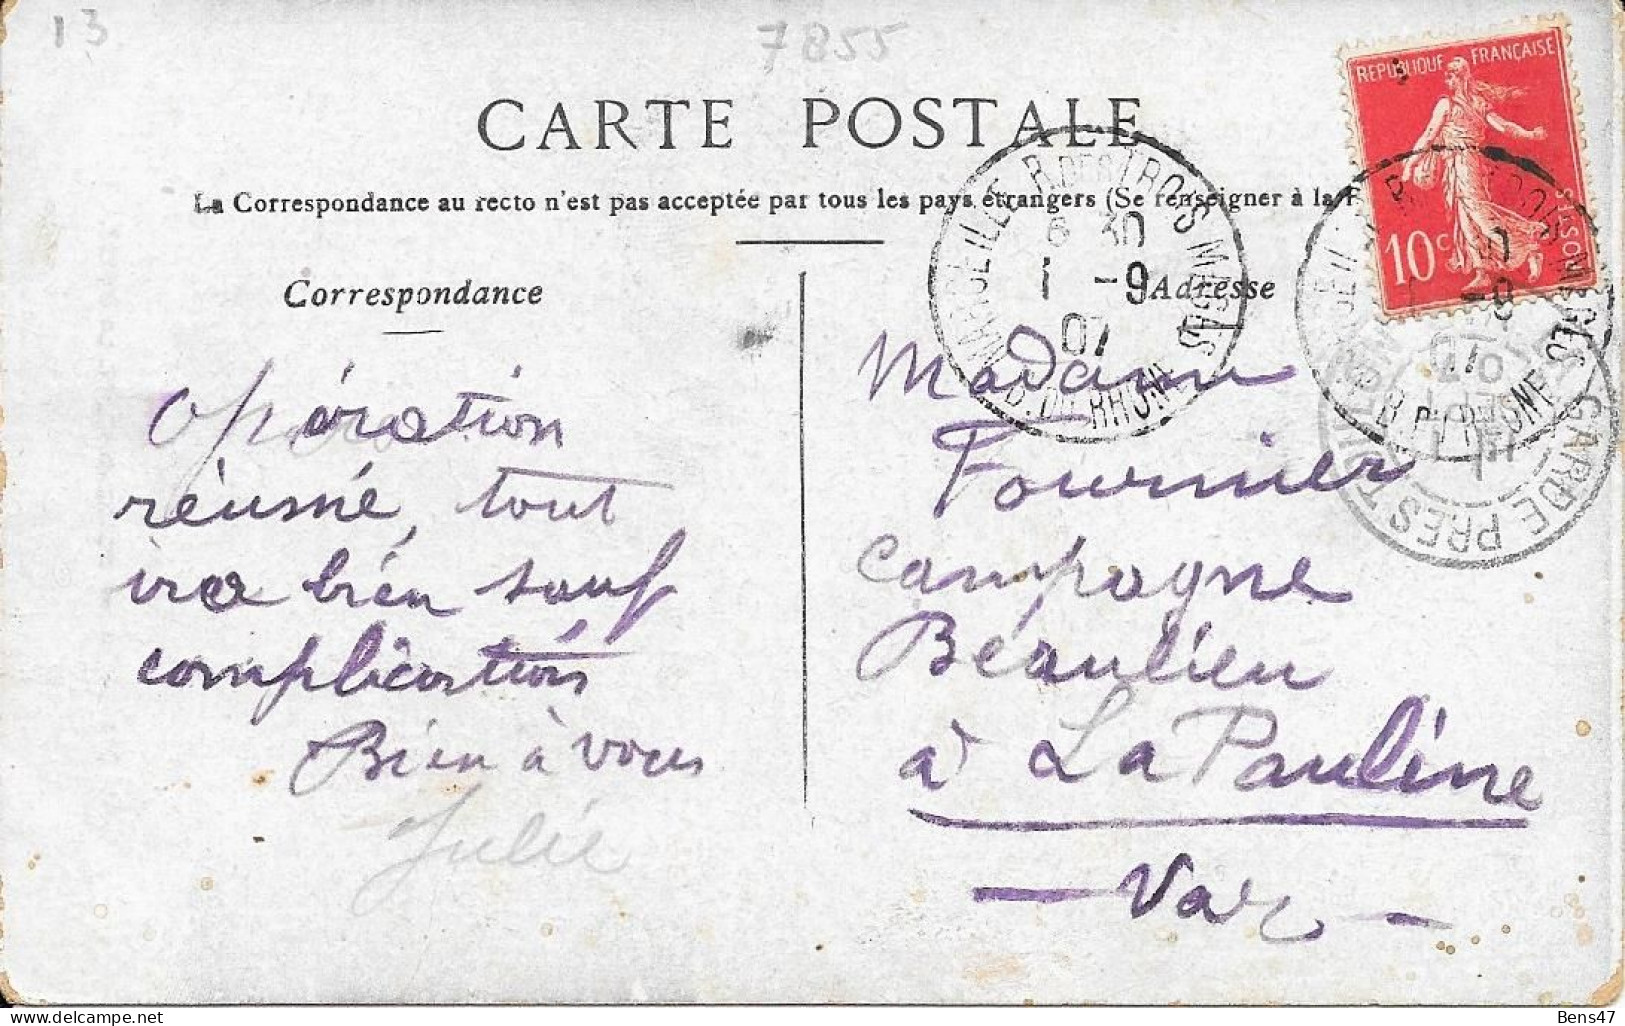 13
7855
CARTE POSTALE
La Correspondance au recto n'est pas acceptée par tous les pays étrangers (Se renseigner à la P
REPUBLIQUE FRANÇAISE
10c
MARSEILLE R. DES TROIS MAGES
6 30
1 -9
07
B. DU RHONE
LA GARDE PRES TOULON
Correspondance
Opération
réussie, tout
ira bien sauf
complications
Bien à vous
Julie
Adresse
Madame
Fournier
Campagne
Beaulieu
à La Pauline
— Var —
Bens47